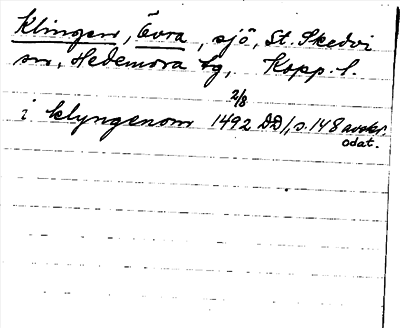 Klingen, Övra, sjö, St. Skedvi
sn, Hedemora tg, Kopp. l.
2/8
i klyngenom 1492 DD 1, s. 148 avskr.
odat.